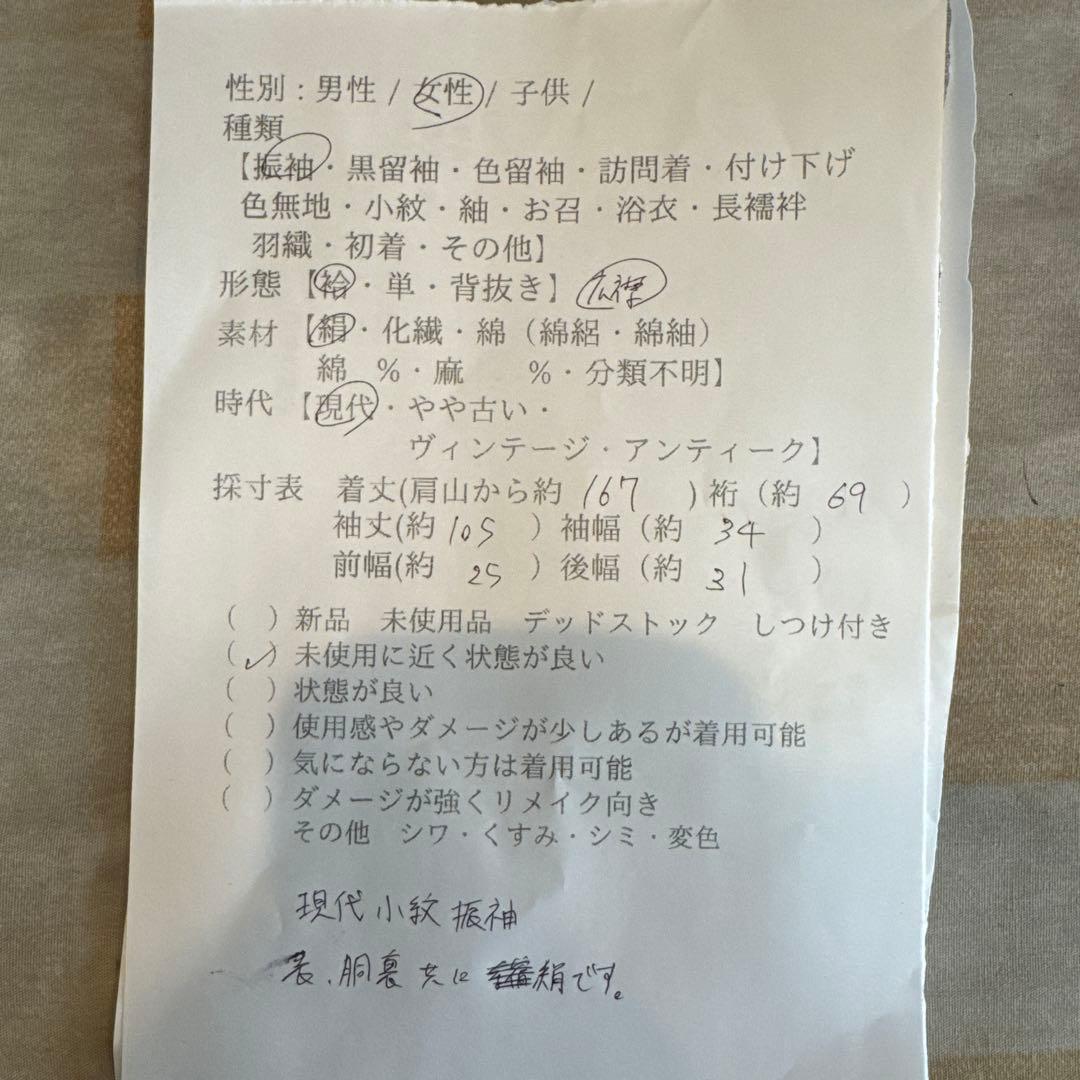 性別：男性 / 女性 / 子供 /
種類
【振袖・黒留袖・色留袖・訪問着・付け下げ
色無地・小紋・紬・お召・浴衣・長襦袢
羽織・初着・その他】
形態 【袷・単・背抜き】 広襟
素材 【絹・化繊・綿（綿絽・綿紬）
綿 %・麻 %・分類不明】
時代 【現代・やや古い・
ヴィンテージ・アンティーク】
採寸表 着丈(肩山から約 167 ) 裄（約 69 ）
袖丈(約 105 ）袖幅（約 34 ）
前幅(約 25 ）後幅（約 31 ）
( ）新品 未使用品 デッドストック しつけ付き
( ✓ ）未使用に近く状態が良い
( ）状態が良い
( ）使用感やダメージが少しあるが着用可能
( ）気にならない方は着用可能
( ）ダメージが強くリメイク向き
その他 シワ・くすみ・シミ・変色
現代 小紋 振袖
表、胴裏 共に 絹です。